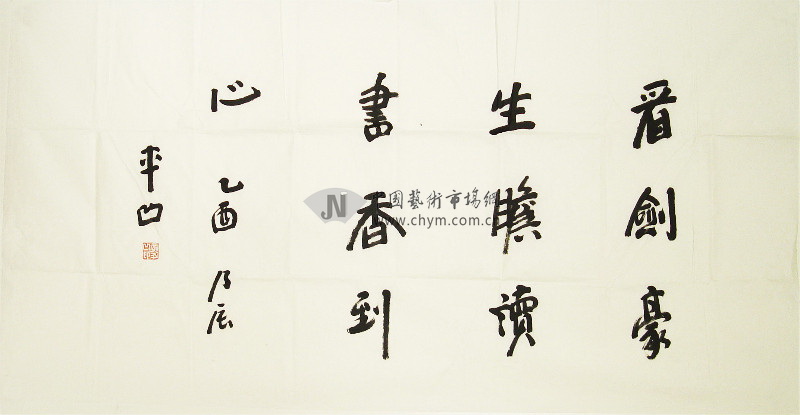 看劍豪
生膽讀
書香到
心 乙酉乃辰
平凹
中國藝術市場網
www.chym.com.cn